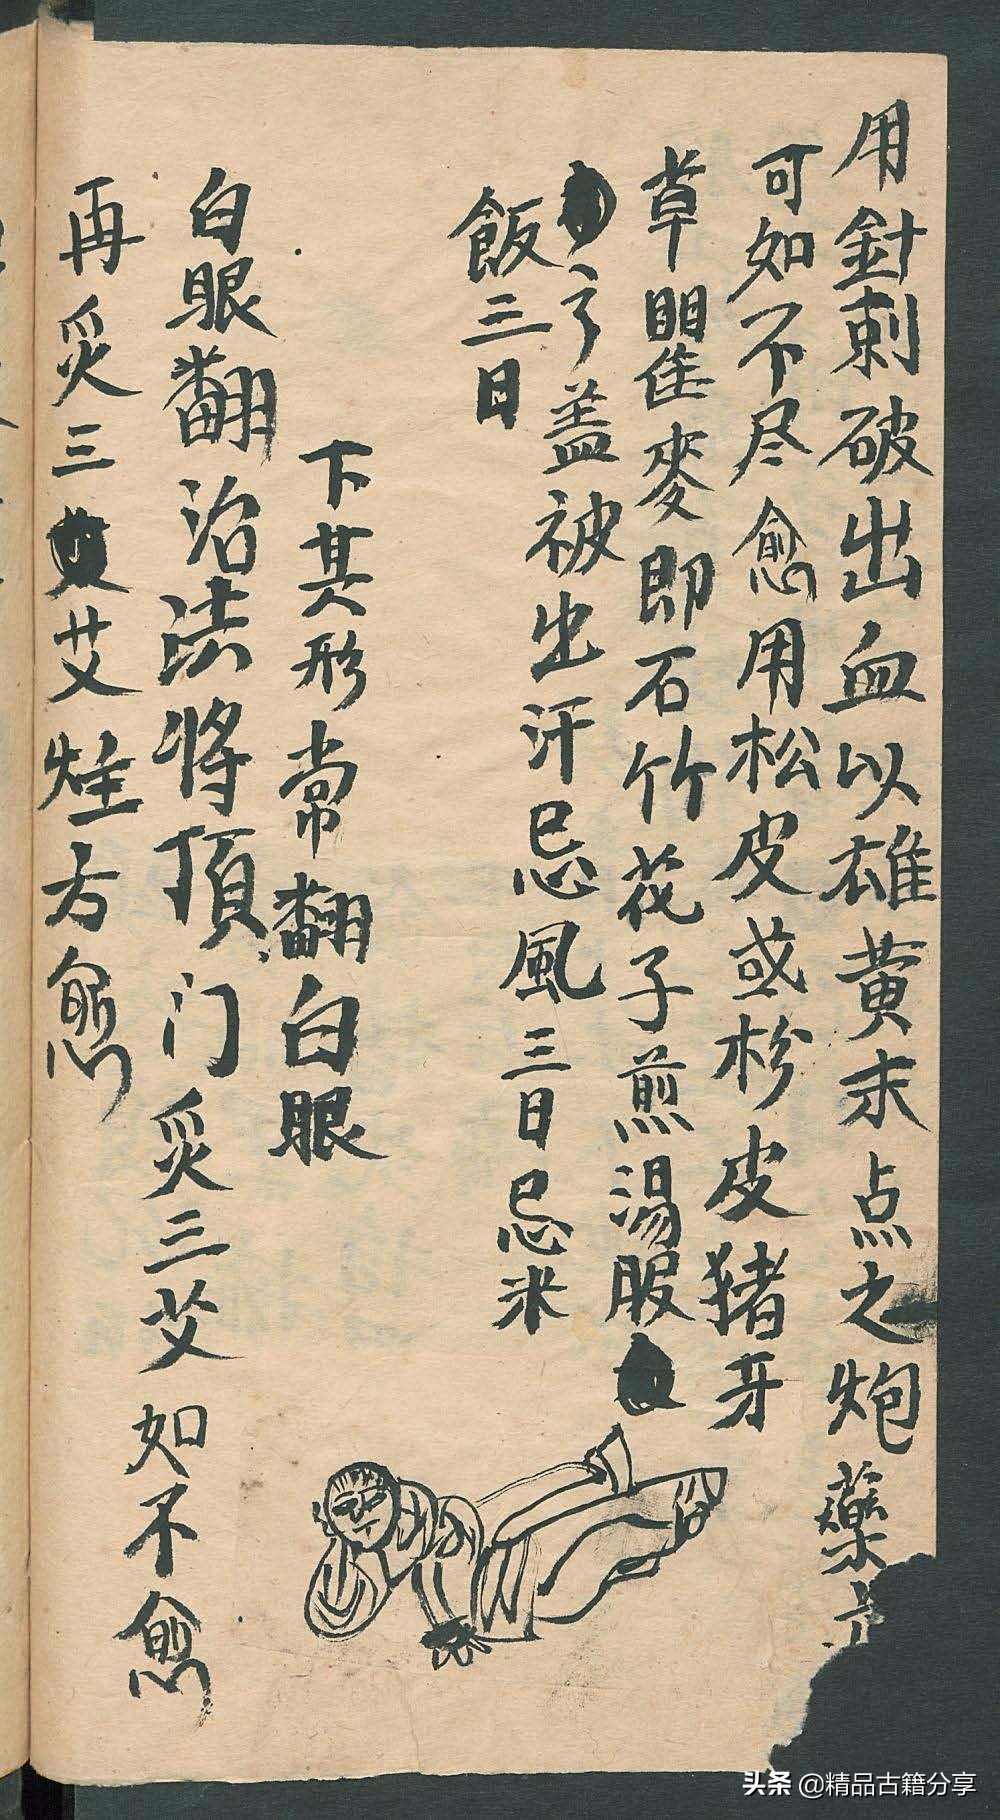 用針刺破出血以雄黄末点之炮藥
可如不尽愈用松皮或杉皮猪牙
草瞿麥即石竹花子煎湯服
了盖被出汗忌風三日忌米
飯三日
下其形常翻白眼
白眼翻治法將頂门炙三艾如不愈
再炙三艾炷方愈
头条 @精品古籍分享